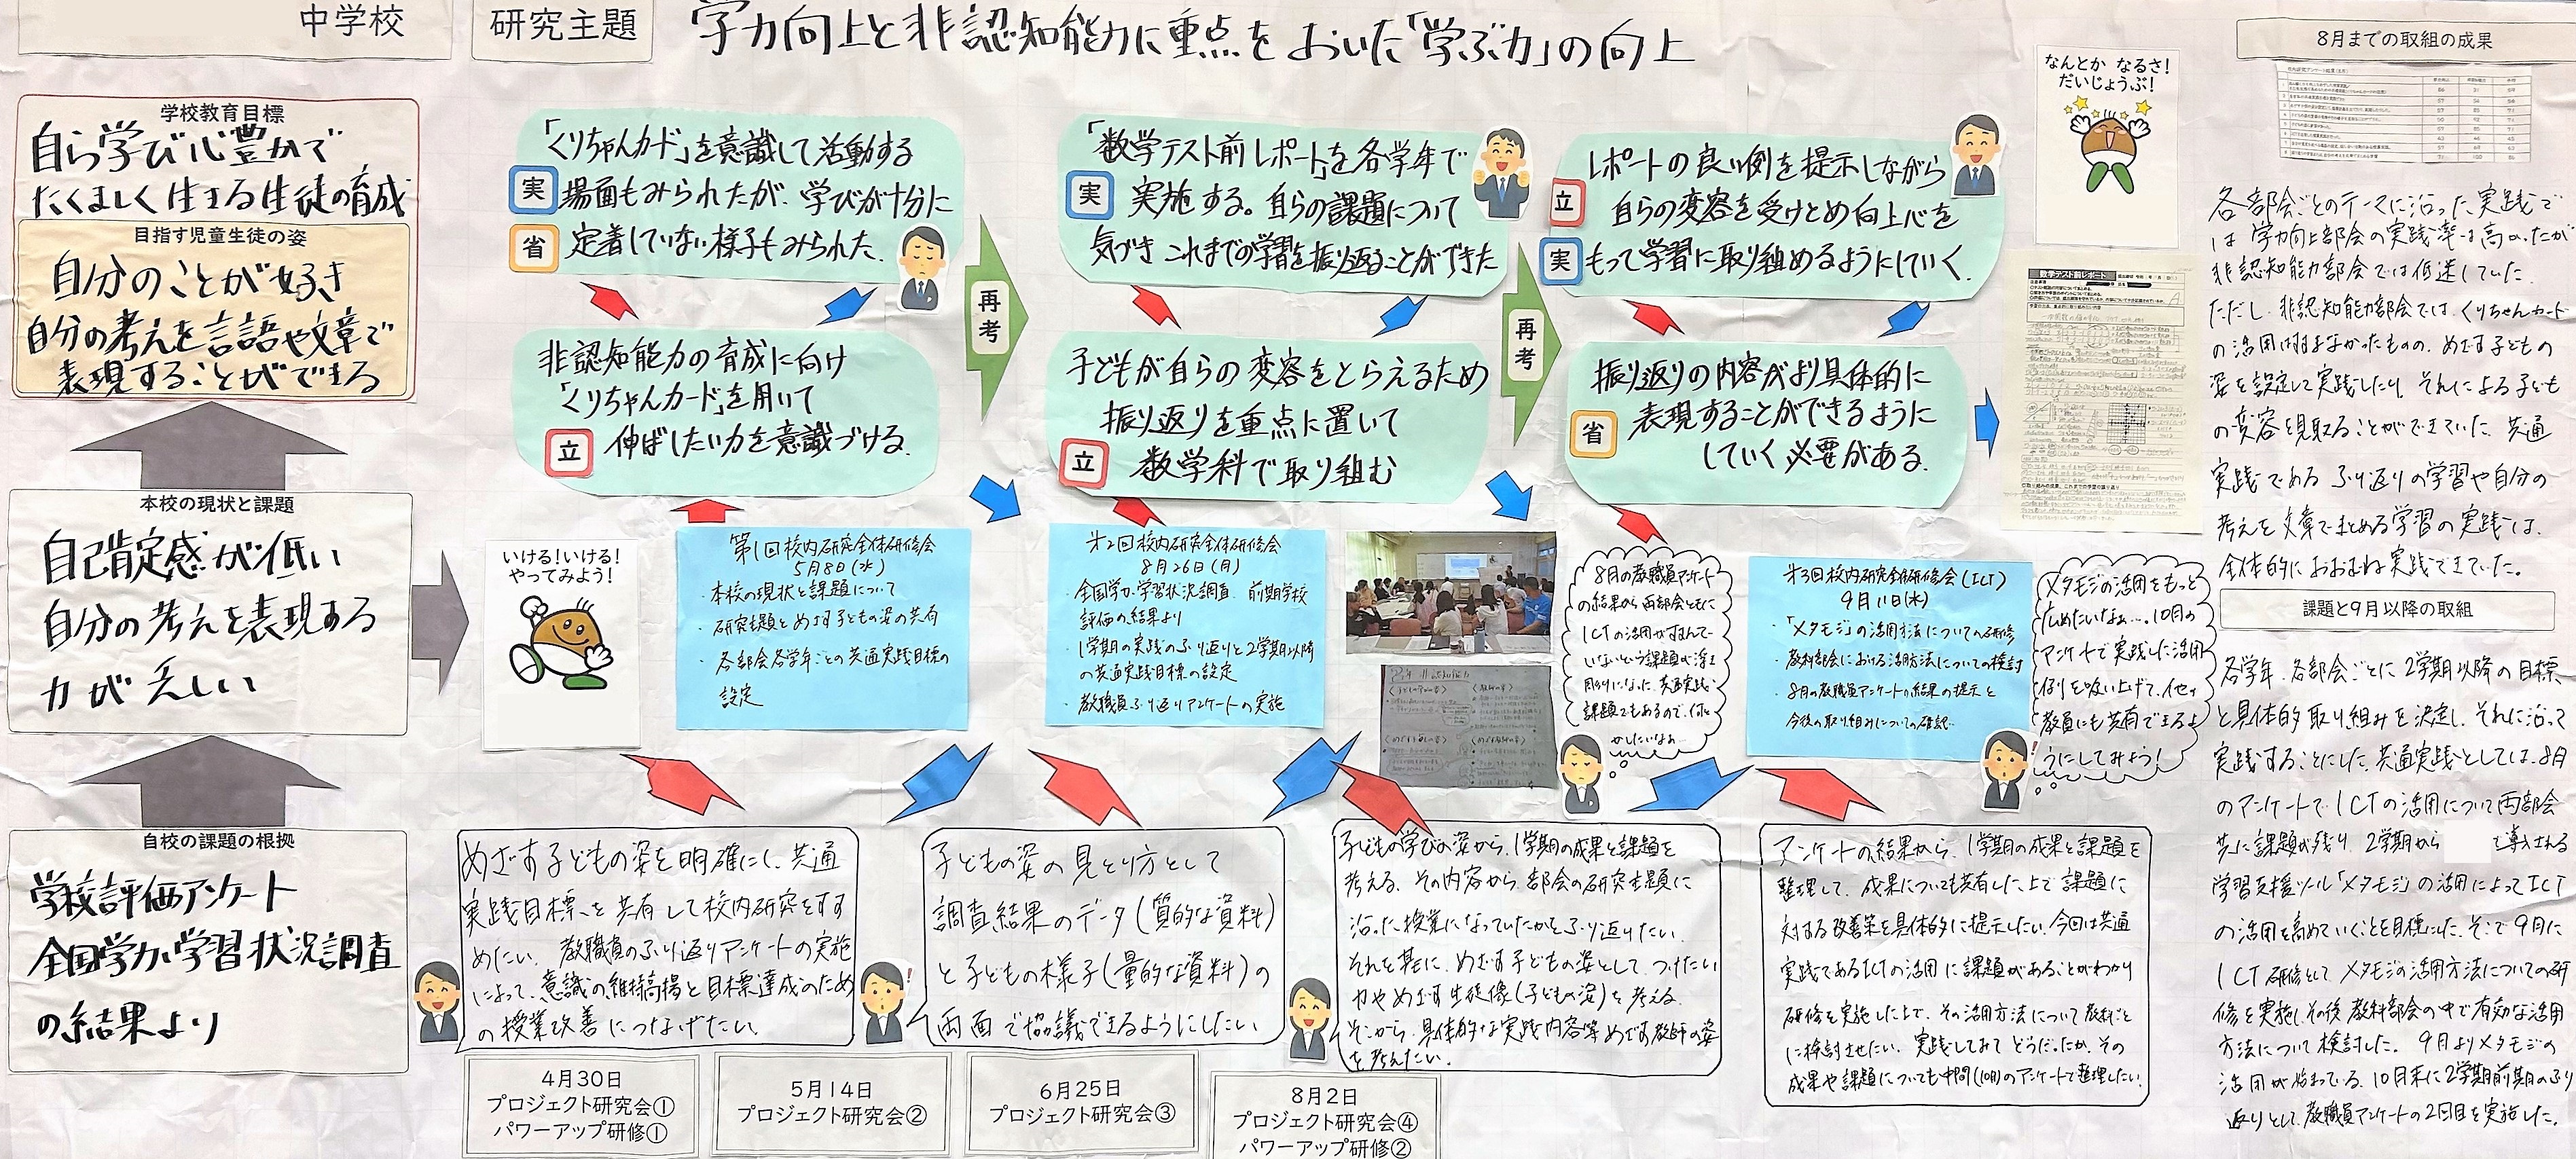 中学校
研究主題
学力向上と非認知能力に重点をおいた「学ぶ力」の向上
学校教育目標
自ら学び心豊かで
たくましく生きる生徒の育成
目指す児童生徒の姿
自分のことが好き
自分の考えを言語や文章で
表現することができる
本校の現状と課題
自己肯定感が低い
自分の考えを表現する
力が乏しい
自校の課題の根拠
学校評価アンケート
全国学力・学習状況調査
の結果より
「くりちゃんカード」を意識して活動する
実
場面もみられたが、学びが十分に
省
定着していない様子もみられた。
非認知能力の育成に向け
「くりちゃんカード」を用いて
立
伸ばしたい力を意識づける。
再考
「数学テスト前レポート」を各学年で
実
実施する。自らの課題について
気づき これまでの学習を振り返ることができた
子どもが自らの変容をとらえるため
振り返りを重点に置いて
立
数学科で取り組む
再考
レポートの良い例を提示しながら
立
自らの変容を受けとめ向上心を
実
もって学習に取り組めるようにしていく。
振り返りの内容がより具体的に
省
表現することができるように
していく必要がある。
なんとか なるさ!
だいじょうぶ!
数学テスト前レポート
いける!いける!
やってみよう!
第1回校内研究全体研修会
5月8日(水)
・本校の現状と課題について
・研究主題とめざす子どもの姿の共有
・各部会各学年ごとの共通実践目標の
設定
第2回校内研究全体研修会
8月26日(月)
・全国学力・学習状況調査、前期学校
評価の結果より
・1学期の実践のふり返りと2学期以降
の共通実践目標の設定
・教職員ふり返りアンケートの実施
8月の教職員アンケート
の結果から両部会ともに
ICTの活用がすすんで
いないという課題が浮き
彫りになった。共通実践
課題でもあるので、何と
かしたいなぁ…
第3回校内研究全体研修会(ICT)
9月11日(水)
・「メタモジ」の活用方法についての研修
・教科部会における活用方法についての検討
・8月の教職員アンケートの結果の提示と
今後の取り組みについての確認
メタモジの活用をもっと
広めたいなぁ…。10月の
アンケートで実践した活用
例を吸い上げて、他の
教員にも共有できるよ
うにしてみよう!
めざす子どもの姿を明確にし、共通
実践目標を共有して校内研究をすす
めたい。教職員のふり返りアンケートの実施
によって、意識の維持高揚と目標達成のため
の授業改善につなげたい。
子どもの姿の見とり方として
調査結果のデータ(質的な資料)
と子どもの様子(量的な資料)の
両面で協議できるようにしたい
子どもの学びの姿から、1学期の成果と課題を
考える。その内容から、部会の研究主題に
沿った授業になっていたかをふり返りたい。
それを基に、めざす子どもの姿として、つけたい
力やめざす生徒像(子どもの姿)を考える。
そこから、具体的な実践内容等めざす教師の姿
を考えたい。
アンケートの結果から、1学期の成果と課題を
整理して、成果についても共有した上で課題に
対する改善策を具体的に提示したい。今回は共通
実践であるICTの活用に課題があることがわかり
研修を実施した上で、その活用方法について教科ごと
に検討させたい。実践してみてどうだったか、その
成果や課題についても中間(10月)のアンケートで整理したい。
4月30日
プロジェクト研究会①
パワーアップ研修①
5月14日
プロジェクト研究会②
6月25日
プロジェクト研究会③
8月2日
プロジェクト研究会④
パワーアップ研修②
8月までの取組の成果
各部会ごとのテーマに沿った実践で
は学力向上部会の実践率は高かったが
非認知能力部会では低迷していた。
ただし、非認知能力部会では、くりちゃんカード
の活用は進まなかったものの、めざす子どもの
姿を設定して実践したり、それによる子ども
の変容を見取ることができていた。共通
実践であるふり返りの学習や自分の
考えを文章でまとめる学習の実践は、
全体的におおむね実践できていた。
課題と9月以降の取組
各学年、各部会ごとに2学期以降の目標
と具体的取り組みを決定し、それに沿って
実践することにした。共通実践としては、8月
のアンケートでICTの活用について両部会
共に課題が残り、2学期から
を導入される
学習支援ツール「メタモジ」の活用によってICT
の活用を高めていくことを目標にした。そこで9月に
ICT研修としてメタモジの活用方法についての研
修を実施し、その後教科部会の中で有効な活用
方法について検討した。9月よりメタモジの
活用が始まっている。10月末に2学期前期のふり
返りとして、教職員アンケートの2回目を実施した。